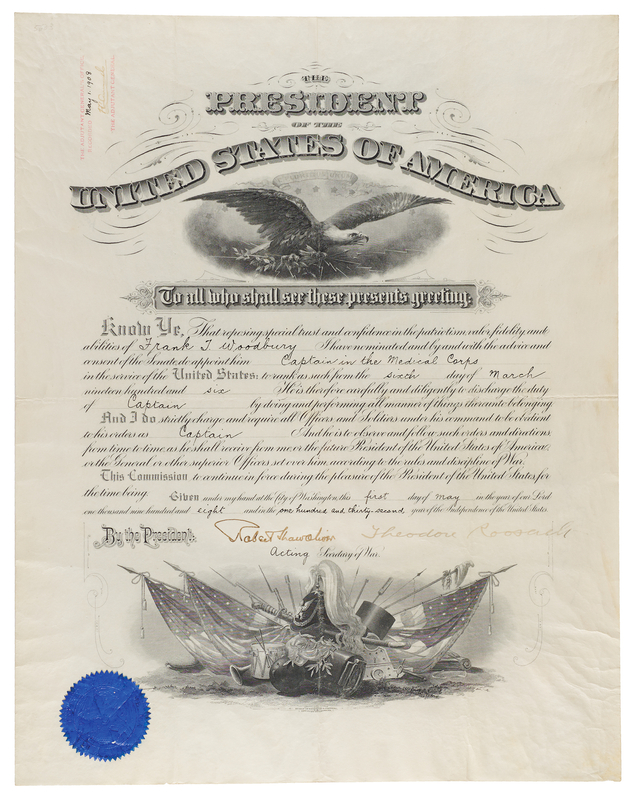 THE
PRESIDENT
OF THE
UNITED STATES OF AMERICA
To all who shall see these presents greeting:
Know Ye, That reposing special trust and confidence in the patriotism, valor, fidelity and
abilities of Frank T. Woodbury I have nominated and by and with the advice and
consent of the Senate do appoint him Captain in the Medical Corps
in the service of the United States: to rank as such from the sixth day of March
nineteen hundred and six He is therefore carefully and diligently to discharge the duty
of Captain by doing and performing all manner of things thereunto belonging.
And I do strictly charge and require all Officers and Soldiers under his command to be obedient
to his orders as Captain And he is to observe and follow such orders and directions
from time to time, as he shall receive from me, or the future President of the United States of America,
or the General or other superior Officers set over him, according to the rules and discipline of War.
This Commission to continue in force during the pleasure of the President of the United States for
the time being.
Given under my hand at the City of Washington, this first day of May in the year of our Lord
one thousand nine hundred and eight and in the one hundred and thirty-second year of the Independence of the United States.
By the President: Robert Shaw Oliver Theodore Roosevelt
Acting Secretary of War.
May 1, 1908